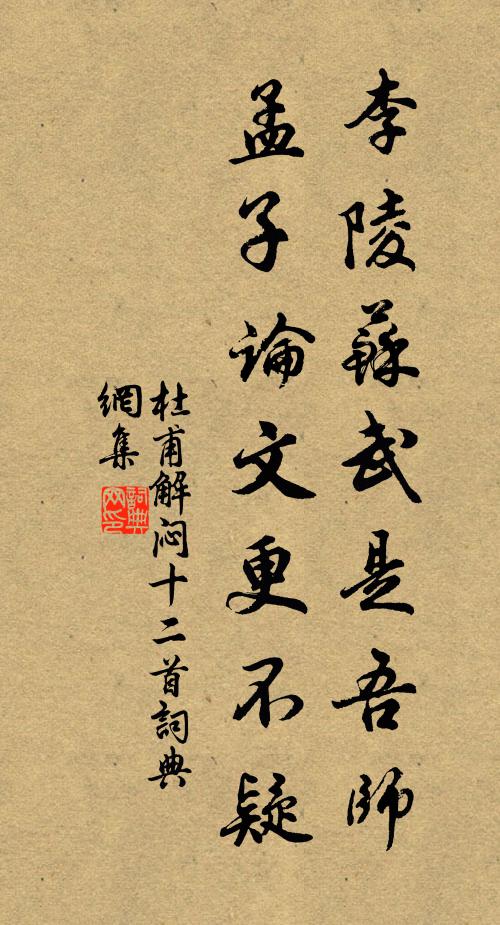 李陵蘇武是吾師
孟子論文更不疑
杜甫解悶十二首詞典
網集
詞典
网印